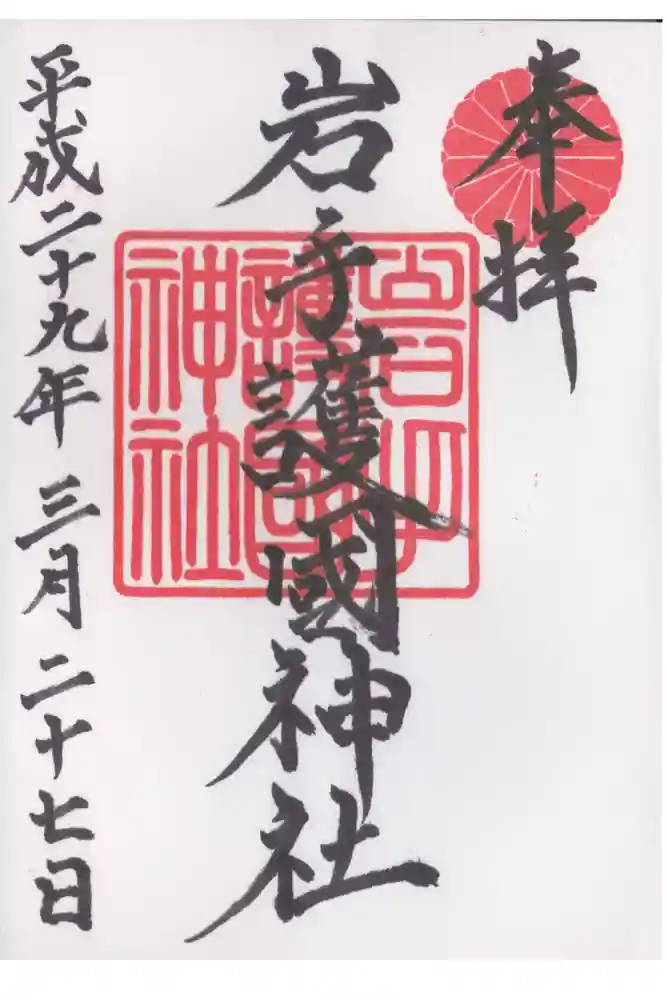 奉拝
岩手護國神社
岩手
護國
神社
平成二十九年三月二十七日